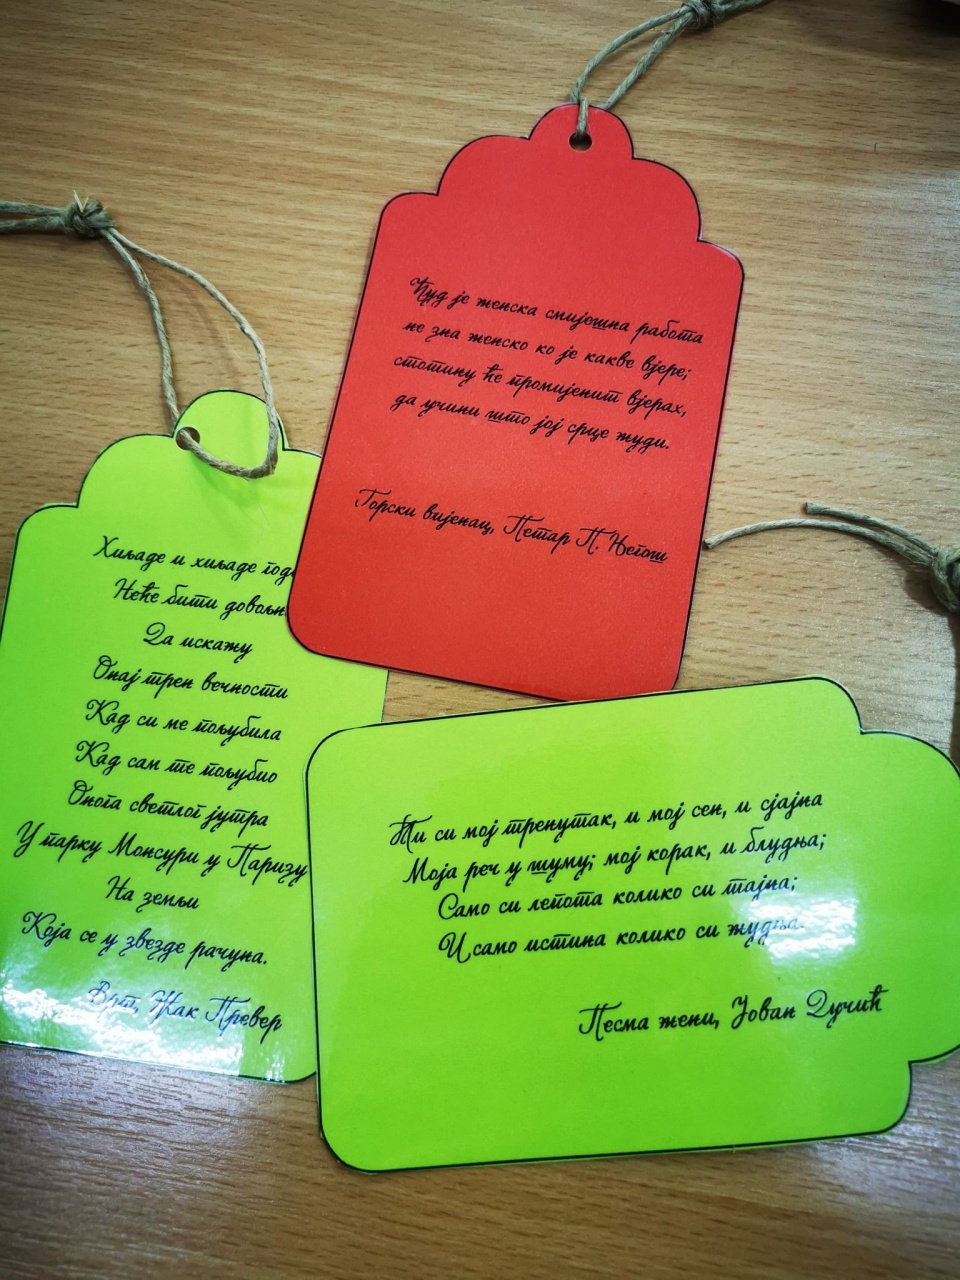 Ћуд је женска смијешна работа
не зна женско ко је какве вјере;
стотину ће промијенит вјерах,
да учини што јој срце жуди.
Горски вијенац, Петар П. Његош
Хиљаде и хиљаде
Неће бити
Да искажу
Онај трен вечности
Кад си ме пољубила
Кад сам те пољубио
Онога светлог јутра
У парку Монсури у Паризу
На земљи
Која се у звезде рачуна.
Врт, Жак Превер
Ти си мој тренутак, и мој сен, и сјајна
Моја реч у шуму; мој корак, и блудња;
Само си лепота колико си тајна;
И само истина колико си жудња.
Песма жени, Јован Дучић